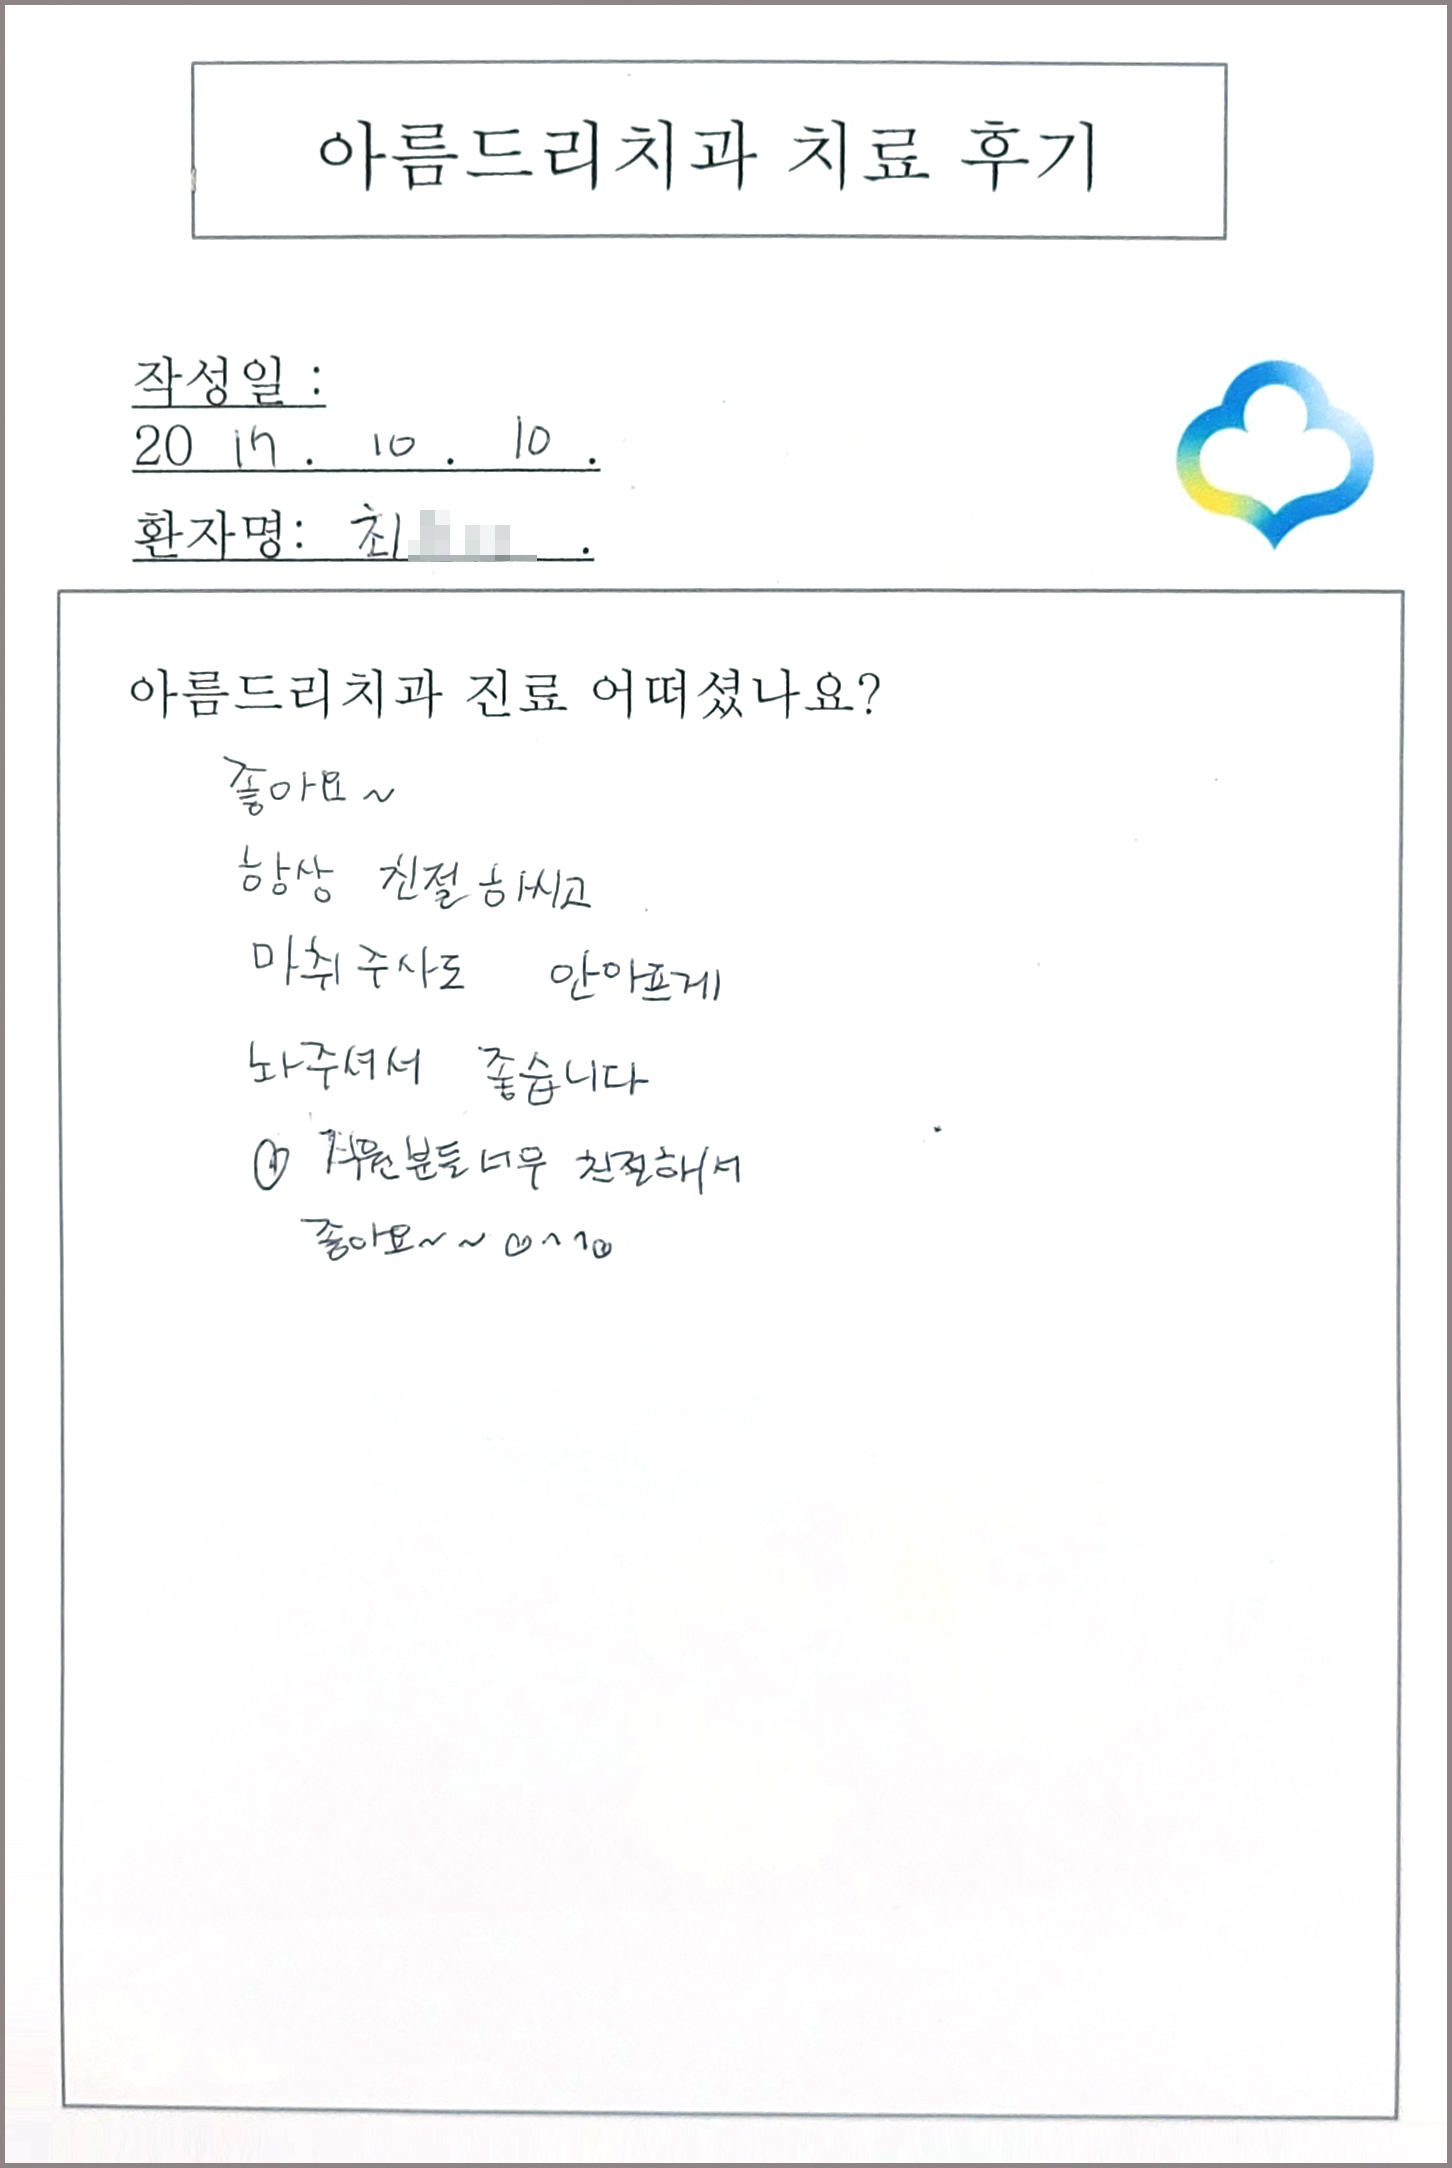 아름드리치과 치료 후기
작성일 :
20 17. 10. 10.
환자명: 최 .
아름드리치과 진료 어떠셨나요?
좋아요~
항상 친절하시고
마취주사도 안아프게
놔주셔서 좋습니다
직원분들 너무 친절해서
좋아요~~